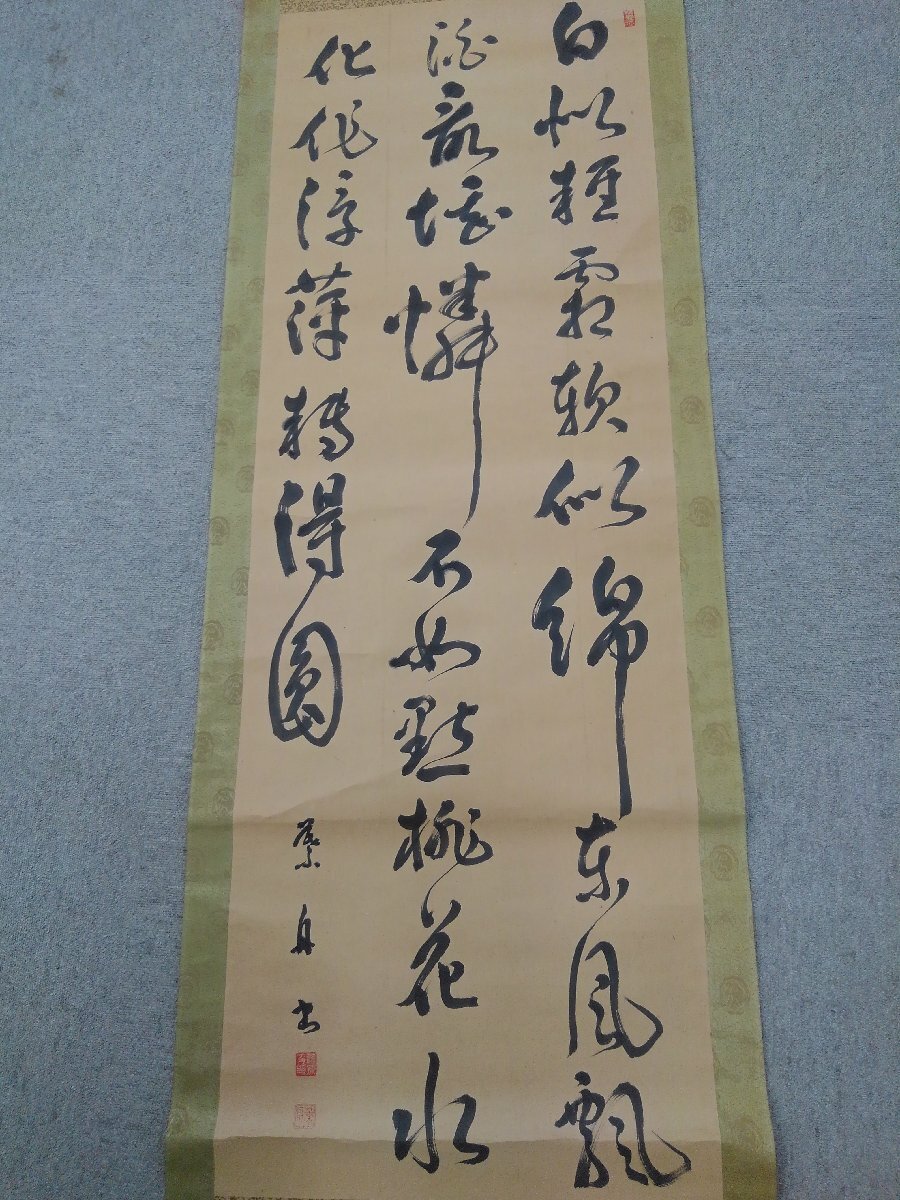 白似輕霜軟似綿東風飄
最堪憐不如點桃花水
化作浮萍轉得圓
舟書